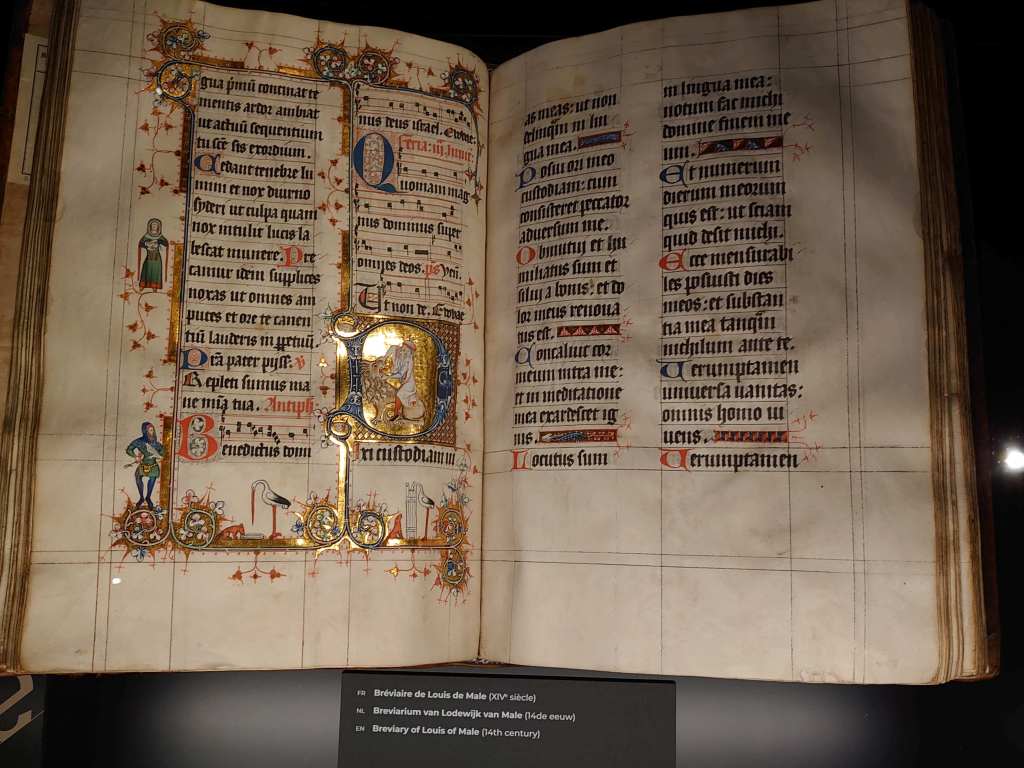 gua primū continat te
mentis ardor ambiat
ut actuū sequentium
tu sc̄ sis exordium.
Cedant tenebre lu
mini et nox diurno
syderi ut culpa quam
nox intulit lucis la
bescat munere. Pre
camur idem supplices
noxas ut omnes am
putes et ore te canen
tiū lauderis in ꝑpetuū.
Prā pater pyss. ℣
Repleti sumus ma
ne mīa tua. Antiph
Benedictus domi
nus deus israel. Euouae
feria
Quoniam mag
nus dominus super
omnes deos. ps Ven.
Ut non de. Euouae
Dixi custodiam
as meas: ut non
delinqm in lin
gua mea.
Posui ori meo
custodiam: cum
consisteret peccator
adversum me.
Omutui et hu
miliatus sum et
silui a bonis: et do
lor meus renoua
tus est.
Concaluit cor
meum intra me:
et in meditatione
mea exardescet ig
nis.
Locutus sum
in lingua mea:
notum fac michi
domine finem me
um.
Et numerum
dierum meorum
quis est: ut sciam
quid desit michi.
Ecce mensurabi
les posuisti dies
meos: et substan
tia mea tanqūi
nichilum ante te.
Uerumptamen
universa uanitas:
omnis homo ui
uens.
Uerumptamen
FR Bréviaire de Louis de Male (XIVᵉ siècle)
NL Breviarium van Lodewijk van Male (14de eeuw)
EN Breviary of Louis of Male (14th century)